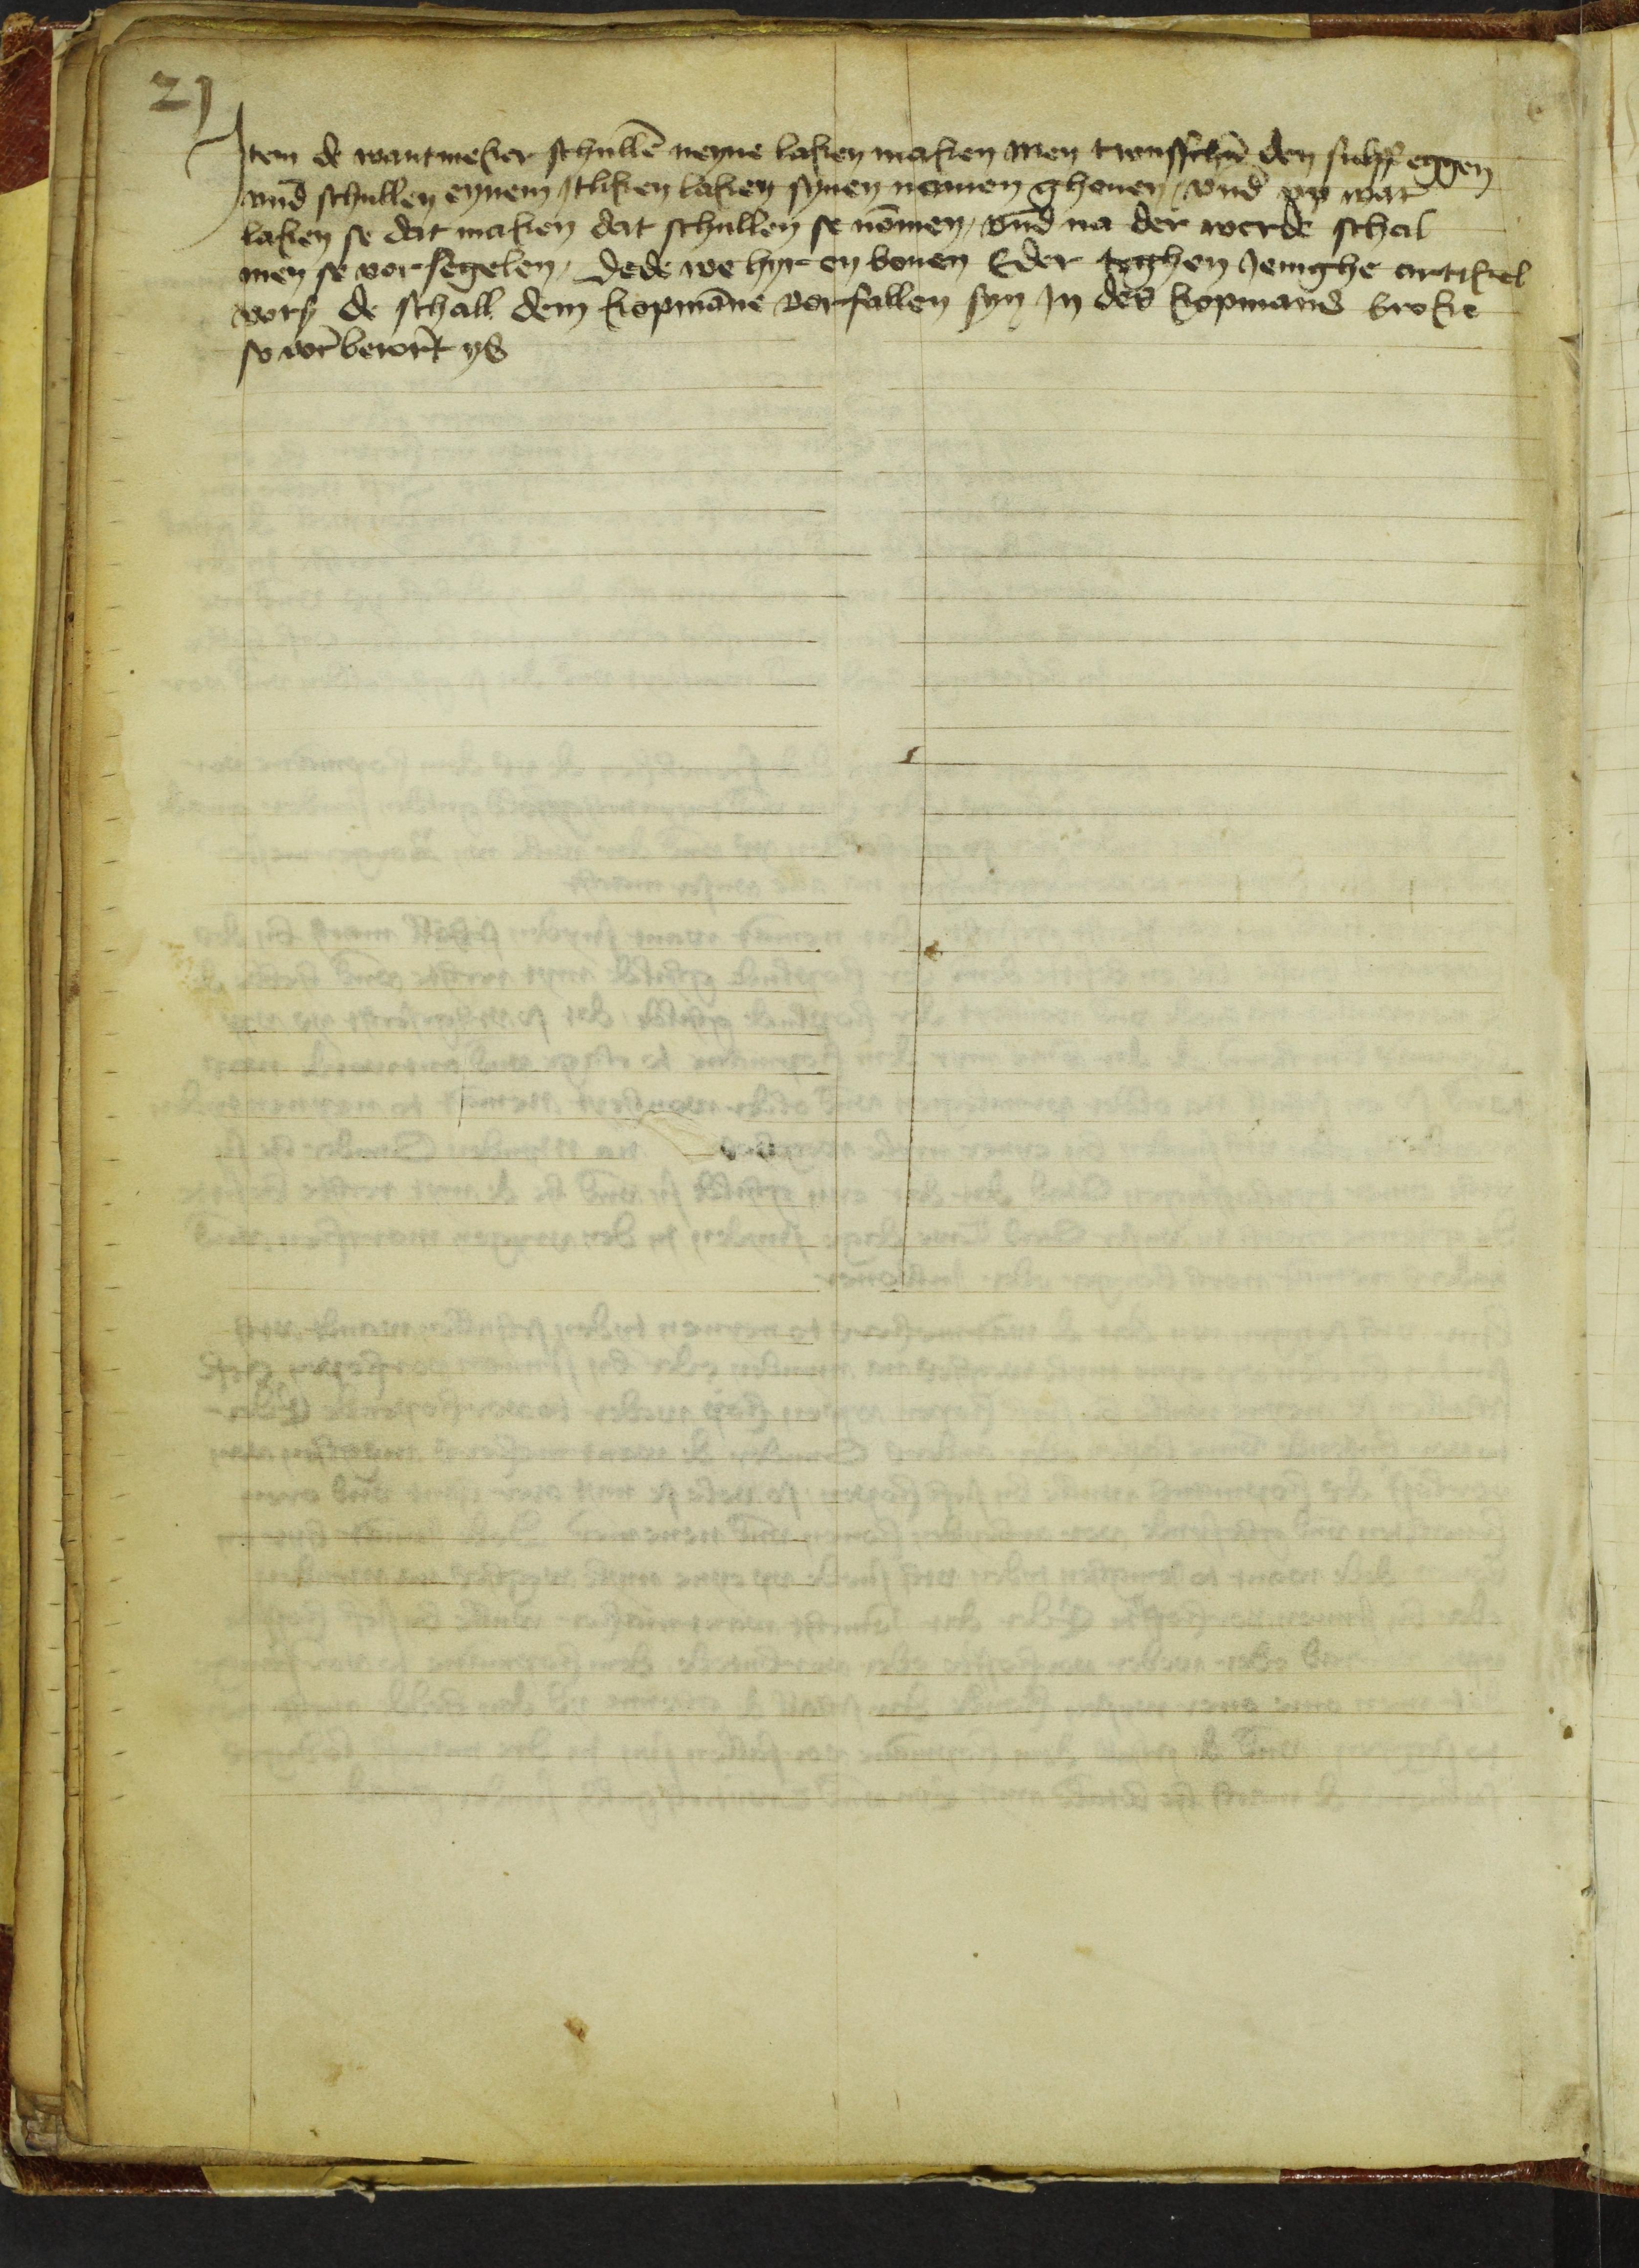 21
Item de wantmeker schullē neyne laken maken men twusschē den sulff eggen
vnd schullen eynem Itliken laken synen namen gheuen / vnd vp wat
laken se dat maken dat schullen se nōmen / vnd na der werde schal
men se vorsegelen / Dede we hyr en bouen Eder teghen Jenighe artikel
vorß de schall dem kopmāne vorfallen syn In des kopmans broke
so vor berort ys